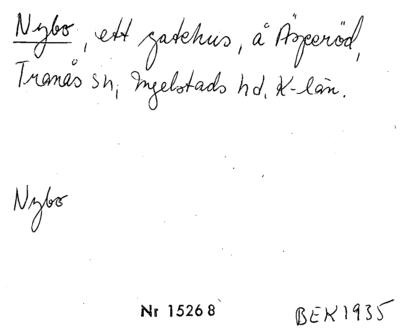 Nybo, ett gatehus, å Äsperöd,
Tranås sn, Ingelstads hd. K-län.
Nybo
Nr 15268
BEK1935